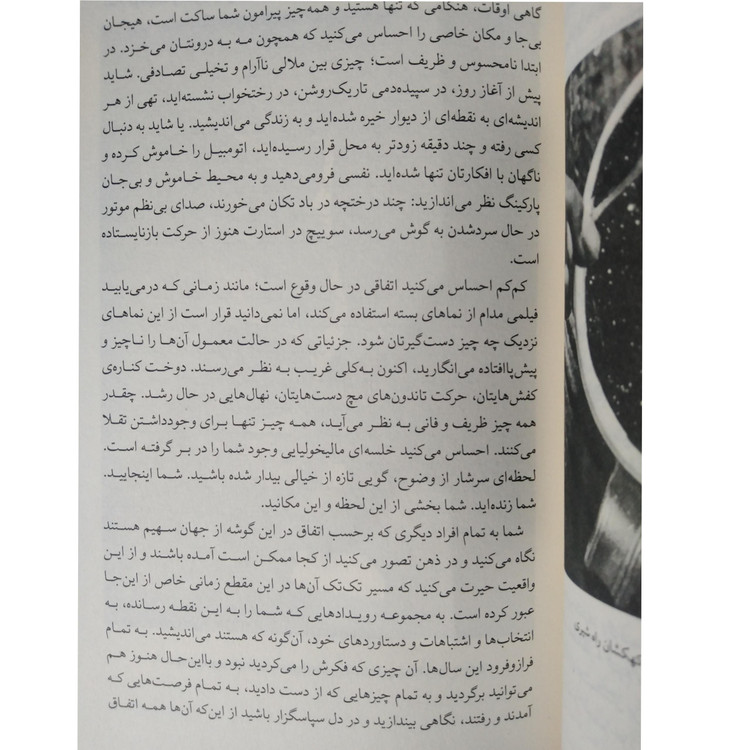 گاهی اوقات، هنگامی که تنها هستید و همه‌چیز پیرامون شما ساکت است، هیجان
بی‌جا و مکان خاصی را احساس می‌کنید که همچون مه به درونتان می‌خزد. در
ابتدا نامحسوس و ظریف است؛ چیزی بین ملالی ناآرام و تخیلی تصادفی. شاید
پیش از آغاز روز، در سپیده‌دمی تاریک‌روشن، در رختخواب نشسته‌اید، تهی از هر
اندیشه‌ای به نقطه‌ای از دیوار خیره شده‌اید و به زندگی می‌اندیشید. یا شاید به دنبال
کسی رفته و چند دقیقه زودتر به محل قرار رسیده‌اید، اتومبیل را خاموش کرده و
ناگهان با افکارتان تنها شده‌اید. نفسی فرومی‌دهید و به محیط خاموش و بی‌جان
پارکینگ نظر می‌اندازید: چند درختچه در باد تکان می‌خورند، صدای بی‌نظم موتور
در حال سردشدن به گوش می‌رسد، سوییچ در استارت هنوز از حرکت بازنایستاده
است.
کم‌کم احساس می‌کنید اتفاقی در حال وقوع است؛ مانند زمانی که درمی‌یابید
فیلمی مدام از نماهای بسته استفاده می‌کند، اما نمی‌دانید قرار است از این نماهای
نزدیک چه چیز دست‌گیرتان شود. جزئیاتی که در حالت معمول آن‌ها را ناچیز و
پیش‌پاافتاده می‌انگارید، اکنون به‌کلی غریب به نظر می‌رسند. دوخت کناره‌ی
کفش‌هایتان، حرکت تاندون‌های مچ دست‌هایتان، نهال‌هایی در حال رشد. چقدر
همه چیز ظریف و فانی به نظر می‌آید، همه چیز تنها برای وجودداشتن تقلا
می‌کنند. احساس می‌کنید خلسه‌ای مالیخولیایی وجود شما را در بر گرفته است.
لحظه‌ای سرشار از وضوح، گویی تازه از خیالی بیدار شده باشید. شما اینجایید.
شما زنده‌اید. شما بخشی از این لحظه و این مکانید.
شما به تمام افراد دیگری که برحسب اتفاق در این گوشه از جهان سهیم هستند
نگاه می‌کنید و در ذهن تصور می‌کنید از کجا ممکن است آمده باشند و از این
واقعیت حیرت می‌کنید که مسیر تک‌تک آن‌ها در این مقطع زمانی خاص از این‌جا
عبور کرده است. به مجموعه رویدادهایی که شما را به این نقطه رسانده، به
انتخاب‌ها و اشتباهات و دستاوردهای خود، آن‌گونه که هستند می‌اندیشید. به تمام
فرازوفرود این سال‌ها. آن چیزی که فکرش را می‌کردید نبود و بااین‌حال هنوز هم
می‌توانید برگردید و به تمام چیزهایی که از دست دادید، به تمام فرصت‌هایی که
آمدند و رفتند، نگاهی بیندازید و در دل سپاسگزار باشید از این‌که آن‌ها همه اتفاق
کهکشان راه شیری